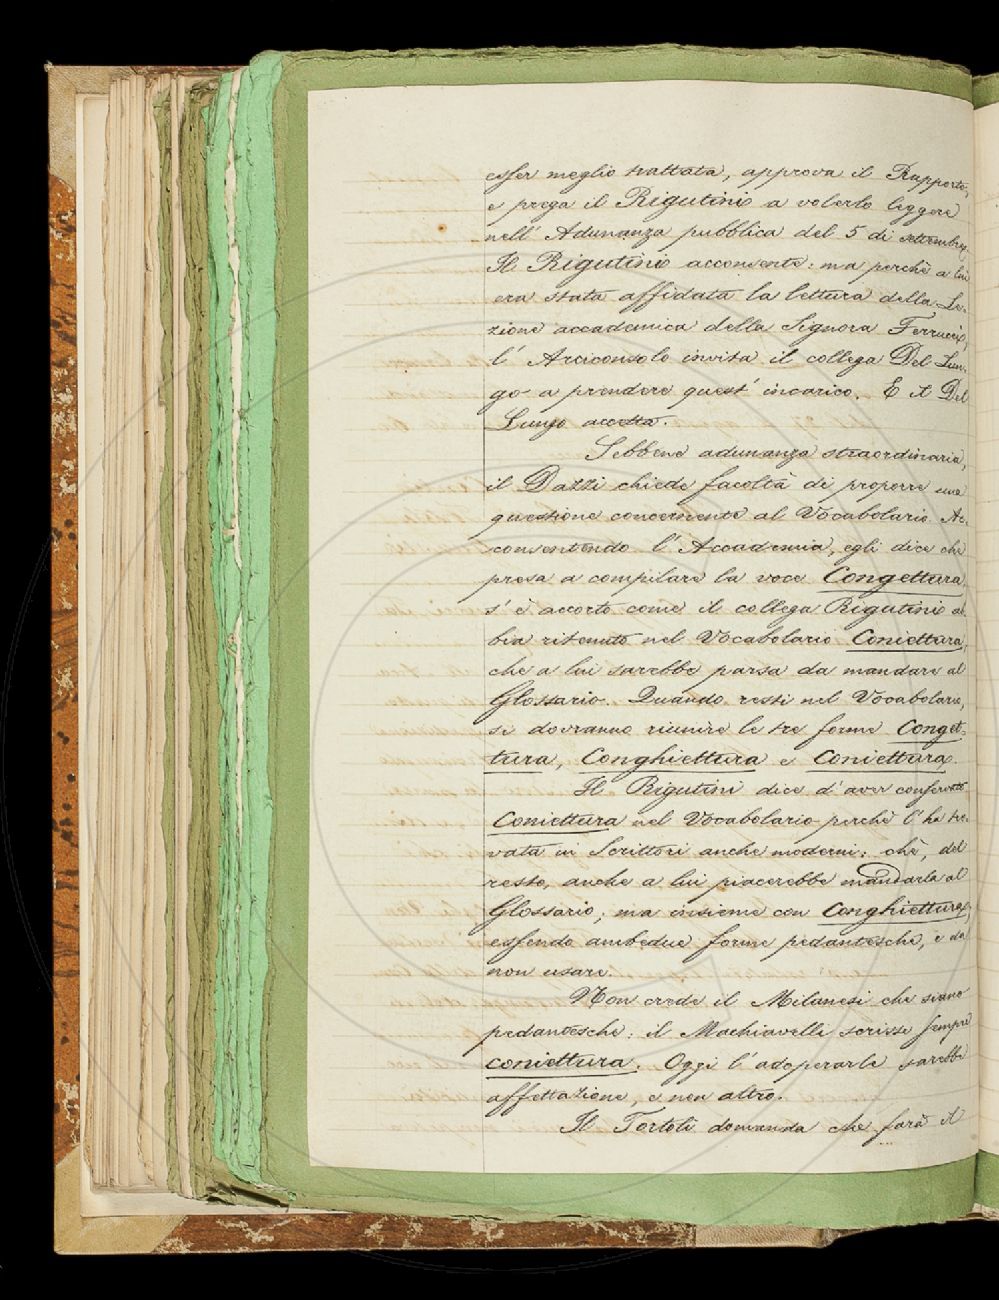 esser meglio trattata, approva il Rapporto,
e prega il Rigutini a volerlo leggere
nell' Adunanza pubblica del 5 di settembre.
Il Rigutini acconsente: ma perchè a lui
era stata affidata la lettura della Le-
zione accademica della Signora Ferrucci,
l' Arciconsolo invita il collega Del Lun-
go a prendere quest' incarico. E il Del
Lungo accetta.
Sebbene adunanza straordinaria,
il Dazzi chiede facoltà di proporre una
questione concernente al Vocabolario. Ac-
consentendo l' Accademia, egli dice che
presa a compilare la voce Congettura,
s' è accorto come il collega Rigutini ab-
bia ritenuto nel Vocabolario Coniettura,
che a lui sarebbe parsa da mandare al
Glossario. Quando resti nel Vocabolario,
si dovranno riunire le tre forme Conget-
tura, Conghiettura e Coniettura.
Il Rigutini dice d' aver conservato
Coniettura nel Vocabolario perchè l' ha tro-
vata in Scrittori anche moderni: chè, del
resto, anche a lui piacerebbe mandarla al
Glossario; ma insieme con Conghiettura,
essendo ambedue forme pedantesche, e da
non usare.
Non crede il Milanesi che siano
pedantesche: il Machiavelli scrisse sempre
coniettura. Oggi l' adoperarla sarebbe
affettazione, e non altro.
Il Tortoli domanda che farà il